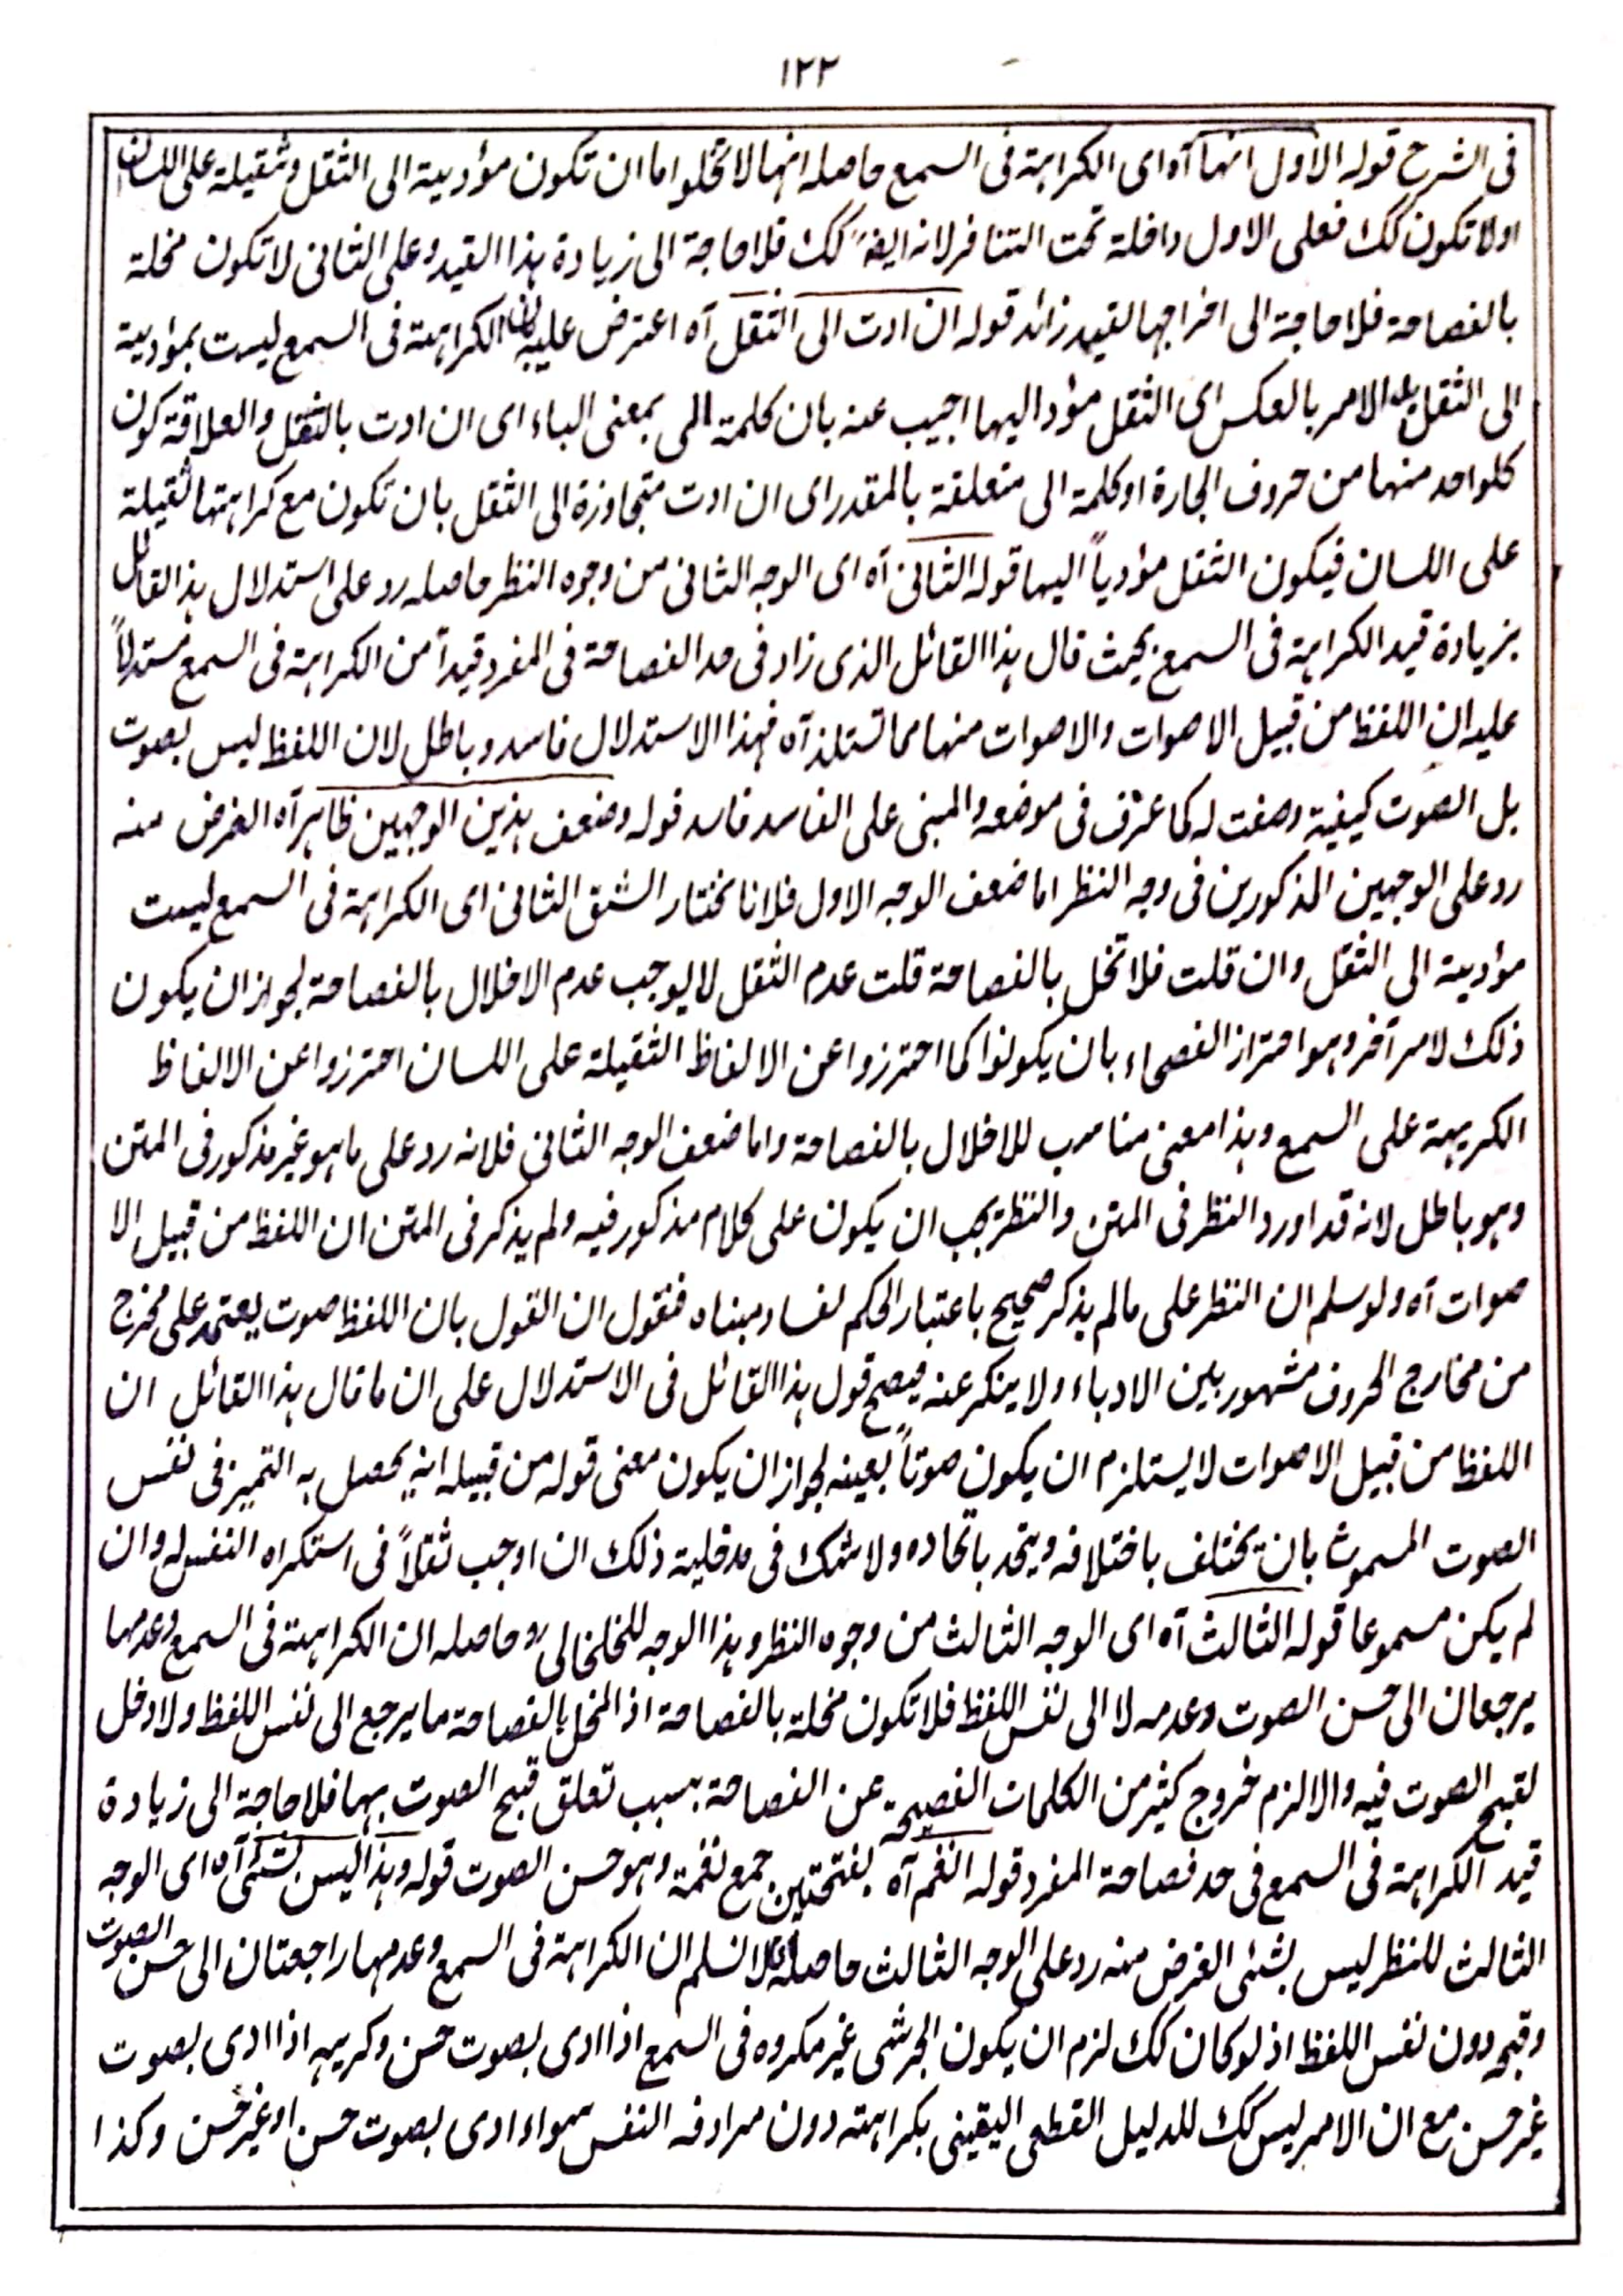 ١٢٢
فى الشرح قوله الاول انها آه اى الكراهة فى السمع حاصله انها لا تخلو اما ان تكون مؤدية الى الثقل وثقيلة على اللسان
اولا تكون كك فعلى الاول داخلة تحت التنافر لانه ايضا كك فلا حاجة الى زيادة هذا القيد وعلى الثانى لا تكون مخلة
بالفصاحة فلا حاجة الى اخراجها لقيد زائد قوله ان ادت الى الثقل آه اعترض عليه بان الكراهة فى السمع ليست بمؤدية
الى الثقل بل الامر بالعكس اى الثقل مؤد اليها اجيب عنه بان كلمة الى بمعنى الباء اى ان ادت بالثقل والعلاقة كون
كلواحد منها من حروف الجارة او كلمة الى متعلقة بالمقدر اى ان ادت متجاوزة الى الثقل بان تكون مع كراهتها ثقيلة
على اللسان فيكون الثقل مؤدياً اليها قوله الثانى آه اى الوجه الثانى من وجوه النظر حاصله رد على استدلال هذا القائل
بزيادة قيد الكراهة فى السمع بحيث قال هذا القائل الذى زاد فى حد الفصاحة فى المفرد قيداً من الكراهة فى السمع مستدلاً
عليه ان اللفظ من قبيل الاصوات والاصوات منها مما تستلذ آه فهذا الاستدلال فاسد وباطل لان اللفظ ليس بصوت
بل الصوت كيفية وصفت له كما عرف فى موضعه والمبنى على الفاسد فاسد قوله وضعف هذين الوجهين ظاهر آه الغرض منه
رد على الوجهين المذكورين فى وجه النظر اما ضعف الوجه الاول فلانا نختار الشق الثانى اى الكراهة فى السمع ليست
مؤدية الى الثقل وان قلت فلا تخل بالفصاحة قلت عدم الثقل لا يوجب عدم الاخلال بالفصاحة لجواز ان يكون
ذلك لامر آخر وهو احتراز الفصحاء بان يكونوا كما احترزوا عن الالفاظ الثقيلة على اللسان احترزوا عن الالفاظ
الكريهة على السمع وهذا معنى مناسب للاخلال بالفصاحة واما ضعف الوجه الثانى فلانه رد على ما هو غير مذكور فى المتن
وهو باطل لانه قد اورد النظر فى المتن والنظر يجب ان يكون على كلام مذكور فيه ولم يذكر فى المتن ان اللفظ من قبيل الا
صوات آه ولو سلم ان النظر على مالم يذكر صحيح باعتبار الحكم لفساد مبناه فنقول ان القول بان اللفظ صوت يعتمد على مخرج
من مخارج الحروف مشهور بين الادباء ولا ينكر عنه فيصح قول هذا القائل فى الاستدلال على ان ما قال هذا القائل ان
اللفظ من قبيل الاصوات لا يستلزم ان يكون صوتاً بعينه لجواز ان يكون معنى قوله من قبيله انه يحصل به التميز فى نفس
الصوت المسموع بان يختلف باختلافه ويتحد باتحاده ولا شك فى مدخلية ذلك ان اوجب ثقلاً فى استكراه النفس له وان
لم يكن مسموعا قوله الثالث آه اى الوجه الثالث من وجوه النظر وهذا الوجه للخلخالى رد وحاصله ان الكراهة فى السمع وعدمها
يرجعان الى حسن الصوت وعدمه لا الى نفس اللفظ فلا تكون مخلة بالفصاحة اذ المخل بالفصاحة ما يرجع الى نفس اللفظ ولا دخل
لقبح الصوت فيه والا لزم خروج كثير من الكلمات الفصيحة عن الفصاحة بسبب تعلق قبح الصوت بها فلا حاجة الى زيادة
قيد الكراهة فى السمع فى حد فصاحة المفرد قوله النغم آه بفتحتين جمع نغمة وهو حسن الصوت قوله وهذا ليس بشئ آه اى الوجه
الثالث للنظر ليس بشئى الغرض منه رد على الوجه الثالث حاصله انا لا نسلم ان الكراهة فى السمع وعدمها راجعتان الى حسن الصوت
وقبحه دون نفس اللفظ اذ لو كان كك لزم ان يكون الجرشى غير مكروه فى السمع اذا ادى بصوت حسن وكريه اذا ادى بصوت
غير حسن مع ان الامر ليس كك للدليل القطعى اليقينى بكراهته دون مرادفه النفس سواء ادى بصوت حسن او غير حسن وكذا